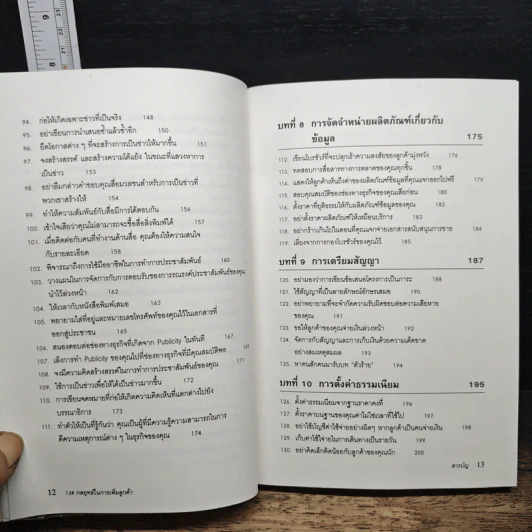 94. ก่อให้เกิดเฉพาะข่าวที่เป็นจริง 148
95. อย่าเขียนการนำเสนอซ้ำแล้วซ้ำอีก 150
96. ยึดโอกาสต่าง ๆ ที่จะสร้างการเป็นข่าวให้มากขึ้น 151
97. จงสร้างสรรค์ และสร้างความได้แย้ง ในขณะที่แสวงหาการ
เป็นข่าว 153
98. อย่าลืมกล่าวคำขอบคุณสื่อมวลชนสำหรับการเป็นข่าวที่
พวกเขาสร้างให้ 154
99. ทำให้ความสัมพันธ์กับสื่อมีการโต้ตอบกัน 154
100. เข้าใจเสียว่าคุณไม่สามารถจะซื้อสื่อสิ่งพิมพ์ได้ 157
101. เมื่อติดต่อกับคนที่ทำงานด้านสื่อ คุณต้องให้ความสนใจ
กับรายละเอียด 157
102. พิจารณาถึงการใช้มืออาชีพในการทำการประชาสัมพันธ์ 160
103. วางแผนในการจัดการกับการตอบรับของการรณรงค์ประชาสัมพันธ์ของคุณ
นำไว้ล่วงหน้า 160
104. ให้เวลากับหนังสือพิมพ์เสมอ 160
105. พยายามใส่ที่อยู่และหมายเลขโทรศัพท์ของคุณไว้ในเอกสารที่
ออกสู่ประชาชน 165
106. สนองตอบต่อช่องทางธุรกิจที่เกิดจาก Publicity ในทันที
107. เล็งการทำ Publicity ของคุณไปที่ช่องทางธุรกิจที่มีคุณสมบัติพอ
108. จงมีความคิดสร้างสรรค์ในการทำการประชาสัมพันธ์ของคุณ
109. ใช้การเป็นข่าวเพื่อให้ได้เป็นข่าวมากขึ้น 172
110. การเขียนจดหมายที่ก่อให้เกิดความคิดเห็นที่แตกต่างไปยัง
บรรณาธิการ 173
111. ทำตัวให้เป็นที่รู้กันว่า คุณเป็นผู้ที่มีความรู้ความสามารถในการ
ตีความเหตุการณ์ต่าง ๆ ในธุรกิจของคุณ 174
12 กลยุทธ์ในการเพิ่มลูกค้า
บทที่ 8 การจัดจำหน่ายผลิตภัณฑ์เกี่ยวกับ
ข้อมูล 175
112. เขียนโบรชัวร์ที่จะปลุกเร้าความสงสัยของลูกค้ามุ่งหวัง 176
113. ทดสอบการสื่อสารทางการตลาดของคุณทุกชิ้น 178
114. แสดงให้ลูกค้าเห็นถึงค่าของผลิตภัณฑ์ข้อมูลที่คุณแจกออกไปฟรี
115. สอบคุณสมบัติของช่องทางธุรกิจของคุณเสียก่อน 180
116. ตั้งราคาที่ยุติธรรมให้กับผลิตภัณฑ์ของคุณ 182
117. อย่าตั้งราคาผลิตภัณฑ์ให้เหมือนบริการ 183
118. อย่ากร้าวเกินไปในตอนที่คุณแจกจ่ายเอกสารสนับสนุนการขาย 184
119. เลี่ยงจากการกองโบรชัวร์ของคุณไว้ 185
บทที่ 9 การเตรียมสัญญา 187
120. อย่ามองว่าการเขียนข้อเสนอโครงการเป็นภาระ 188
121. ใช้สัญญาที่เป็นลายลักษณ์อักษรเสมอ 190
122. อย่าพยายามที่จะจำกัดความรับผิดชอบต่อความเสียหาย
ของคุณ 191
123. ขอให้ลูกค้าของคุณจ่ายเงินล่วงหน้า 192
124. จัดการกับสัญญาและการเก็บเงินด้วยความเด็ดขาด
อย่างสมเหตุสมผล 193
125. หาคนสักคนมารับบท "ตัวร้าย" 193
บทที่ 10 การตั้งค่าธรรมเนียม 195
126. ตั้งค่าธรรมเนียมจากฐานราคาคงที่ 196
127. ตั้งราคาบนฐานของคุณค่าไม่ใช่เวลาที่ใช้ไป 197
128. อย่าใช้บัญชีค่าใช้จ่ายอย่างผิดๆ หากลูกค้าเป็นคนจ่ายเงิน 198
129. เก็บค่าใช้จ่ายในการเดินทางเป็นรายวัน 199
130. อย่าคิดเล็กคิดน้อยกับลูกค้าของคุณนัก 200
สารบัญ 13